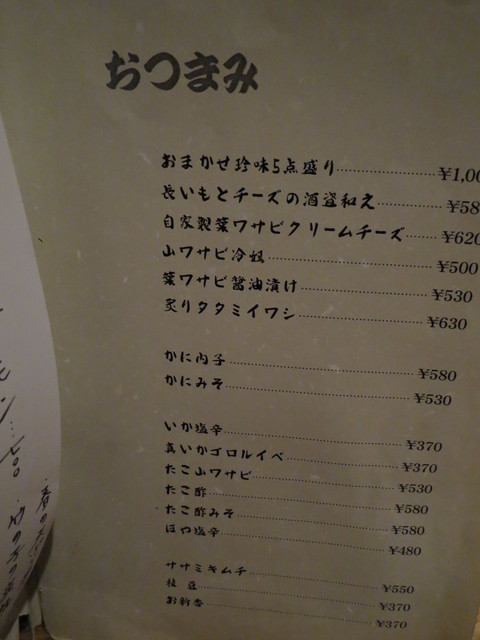 おつまみ
おまかせ珍味5点盛り ¥1,00
長いもとチーズの酒盗和え ¥58
自家製葉ワサビクリームチーズ ¥620
山ワサビ冷奴 ¥500
葉ワサビ醤油漬け ¥530
炙りタタミイワシ ¥630
かに内子 ¥580
かにみそ ¥530
いか塩辛 ¥370
真いかゴロルイベ ¥370
たこ山ワサビ ¥530
たこ酢 ¥580
たこ酢みそ ¥580
ほや塩辛 ¥480
ササミキムチ ¥550
枝豆 ¥370
お新香 ¥370